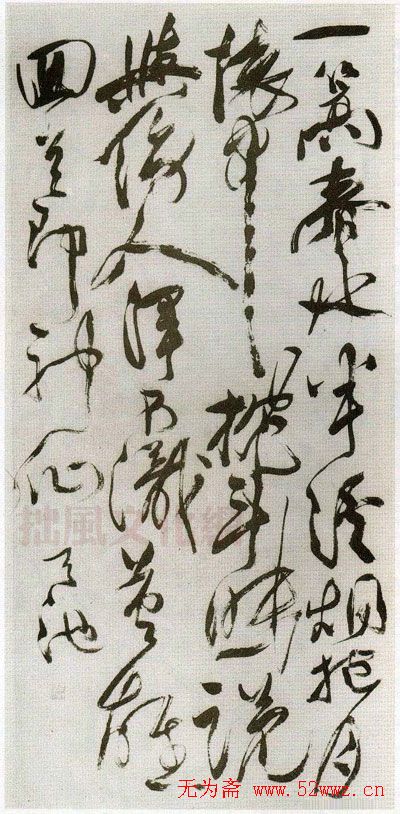 一篙春水半溪烟抱月
懷中枕斗眠說
與傍人渾不識英雄
回首即神仙 天池
拙風文化網
无为斋 www.52wwz.cn